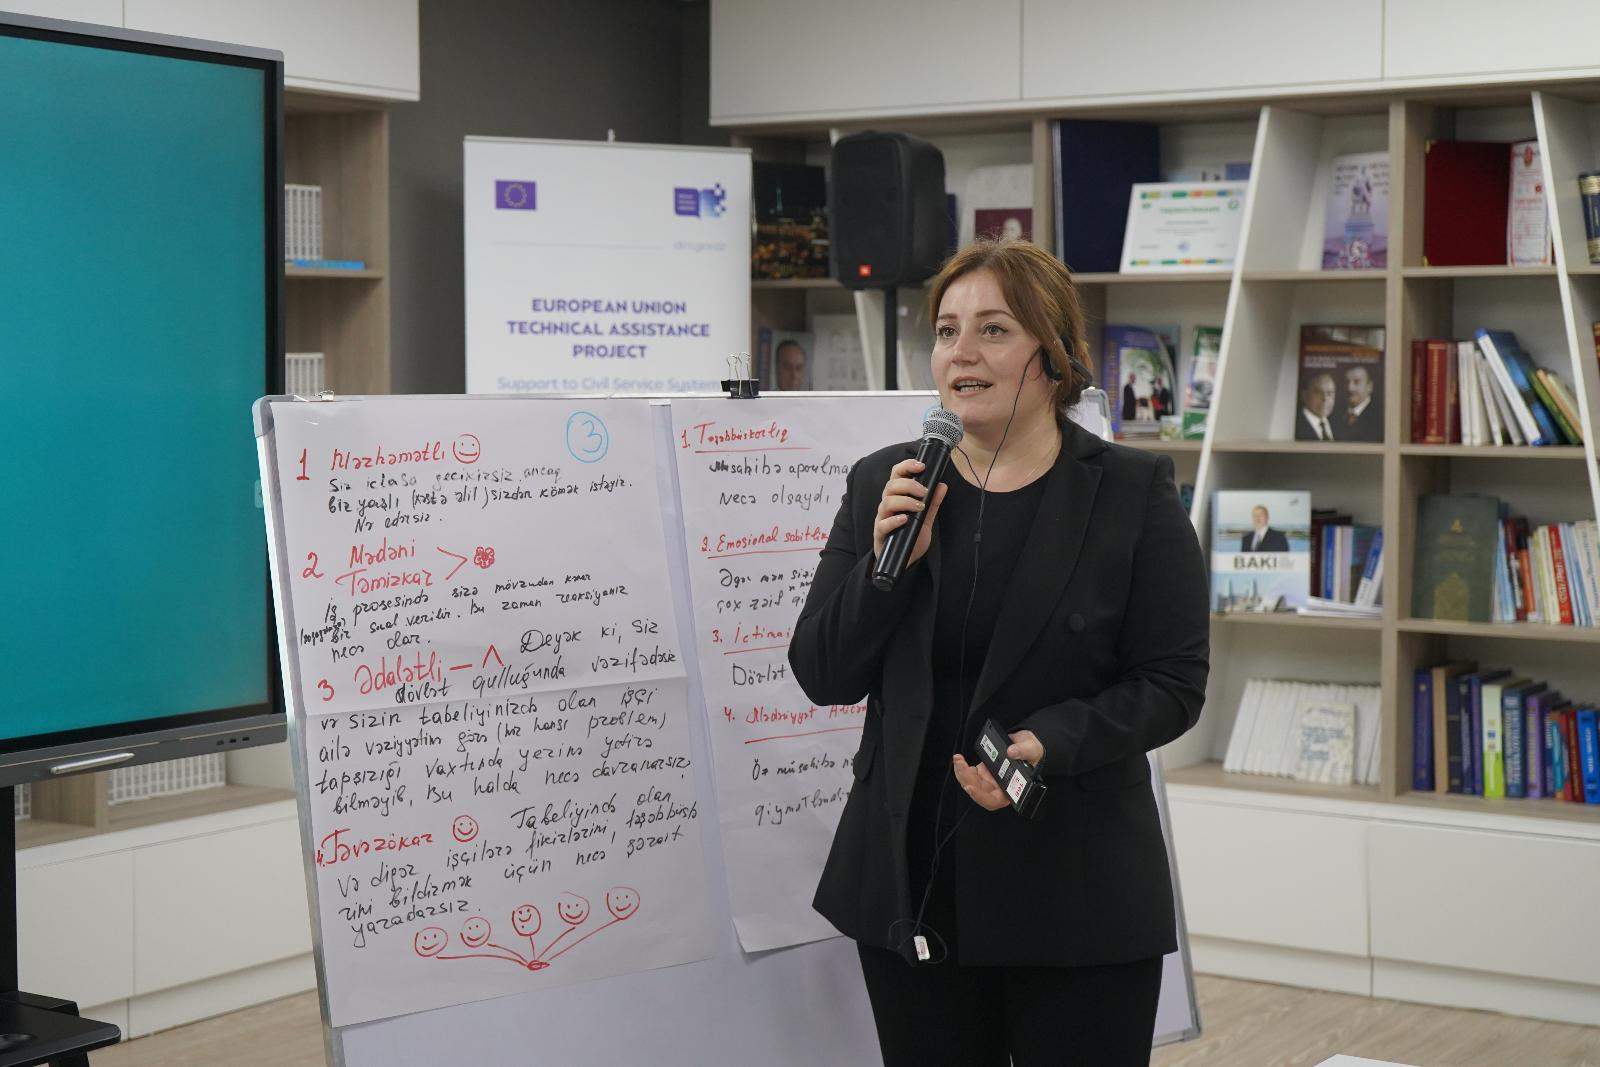 dim.gov.az
EUROPEAN UNION
TECHNICAL ASSISTANCE
PROJECT
Support to Civil Service System
3
1 Mərhəmətli
Siz iclasa gecikirsiz, ancaq
bir yaşlı (xəstə əlil) sizdən kömək istəyir.
Nə edərsiz.
2 Mədəni
Təmizkar
İş prosesində sizə mövzudan kənar
bir sual verilir. Bu zaman reaksiyanız
necə olar.
3 Ədalətli – Deyək ki, siz
dövlət qulluğunda vəzifədəsiz
və sizin tabeliyinizdə olan işçi
ailə vəziyyətinə görə (hər hansı problem)
tapşırığı vaxtında yerinə yetirə
bilməyib, Bu halda necə davranarsız.
4. Təvəzökar Tabeliyində olan
və digər işçilərə fikirlərini, təşəbbüslə
rini bildirmək üçün necə şərait
yaradarsız.
1. Təşəbbüskarlıq
Müsahibə aparılma
Necə olsaydı
2. Emosional sabitlik
Əgər mən sizi
çox zəif
3. İctimai
Dövlət
4. Mədəniyyət
Öz müsahibə
qiymətləndi
BAKI
JBL